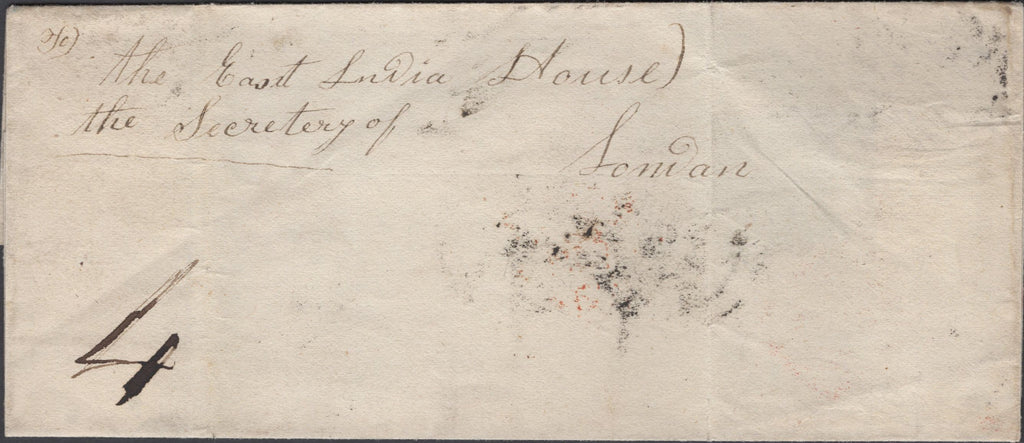 To)
the East India House)
the Secretery of
Londan
4